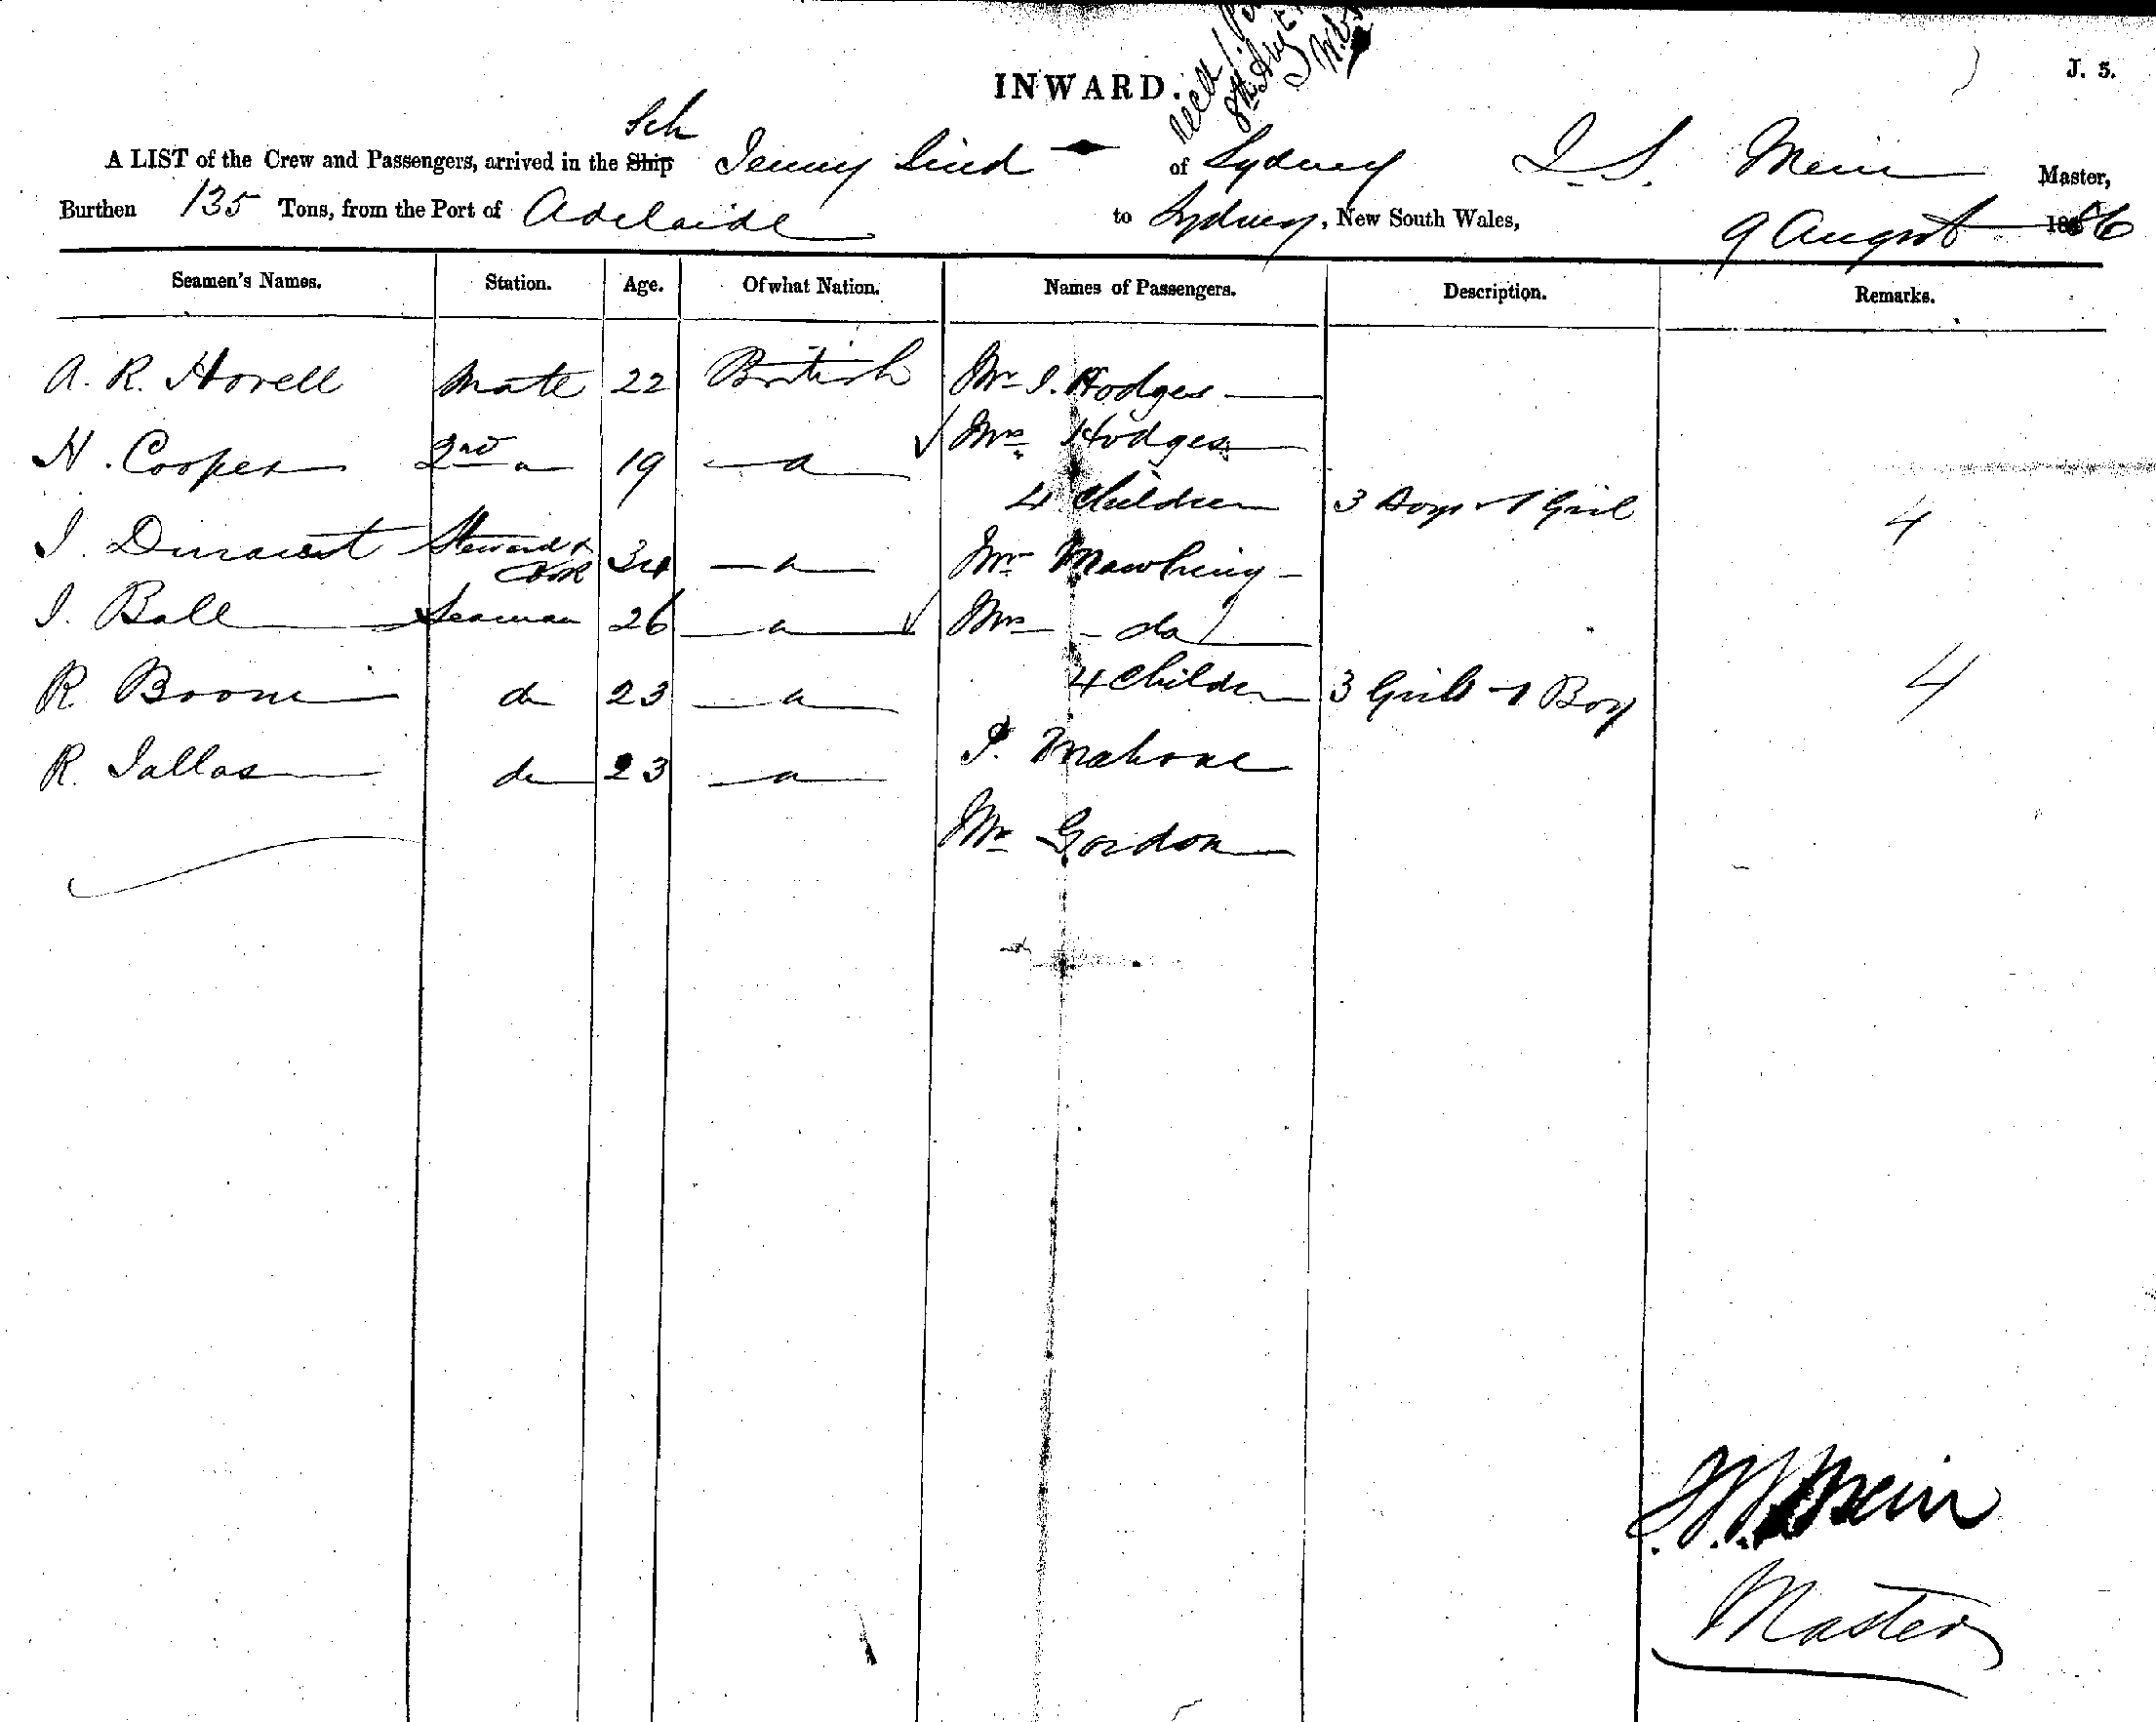 INWARD.
J. 5.
8th Aug
Sch
A LIST of the Crew and Passengers, arrived in the Ship Jenny Lind of Sydney I. S. Mein Master,
Burthen 135 Tons, from the Port of Adelaide to Sydney, New South Wales, 9 August 1856
Seamen's Names. Station. Age. Of what Nation. Names of Passengers. Description. Remarks.
A. R. Hovell Mate 22 British Mr I. Hodges
H. Cooper 2nd 19 Mrs Hodges
4 Children 3 Boys 1 Girl 4
I. Steward & Cook 34 Mr
I. Ball Seaman 26 Mrs do
R. do 23 4 Children 3 Girls 1 Boy 4
R. do 23 P. Mahone
Mr Gordon
Mein
Master